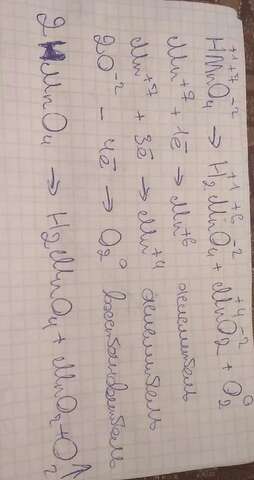 HMnO₄ → H₂MnO₄ + MnO₂ + O₂⁰
Mn⁺⁷ + 1ē → Mn⁺⁶ окислитель
Mn⁺⁷ + 3ē → Mn⁺⁴ окислитель
2O⁻² - 4ē → O₂⁰ восстановитель
2HMnO₄ → H₂MnO₄ + MnO₂ + O₂↑